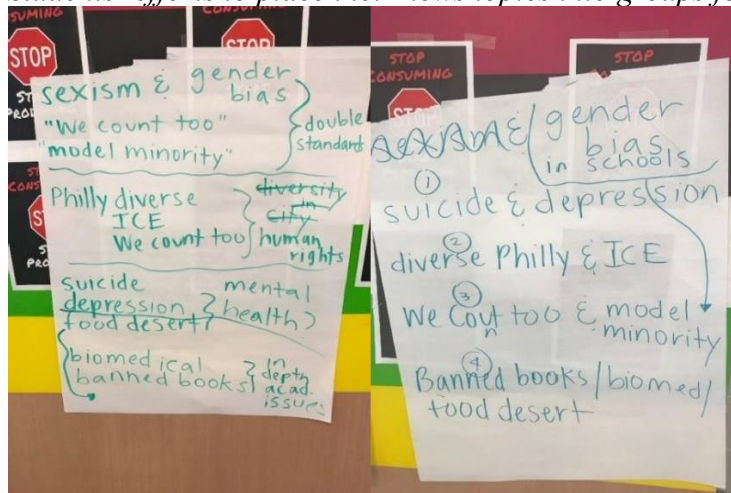 SUMING
STOP
CONSUMING
STOP
sexism & gender
bias
"We count too"
"model minority"
double
standard
Philly diverse
ICE
We count too
diversity
in
city
human
rights
suicide
depression
food desert?
mental
health?
biomedical
banned books
in
depth
acad.
issues
STOP
CONSUMING
STOP
STOP
sexism & gender
bias
in schools
1
suicide & depression
2
diverse Philly & ICE
3
We Cout too & model
n
minority
4
Banned books/biomed/
food desert